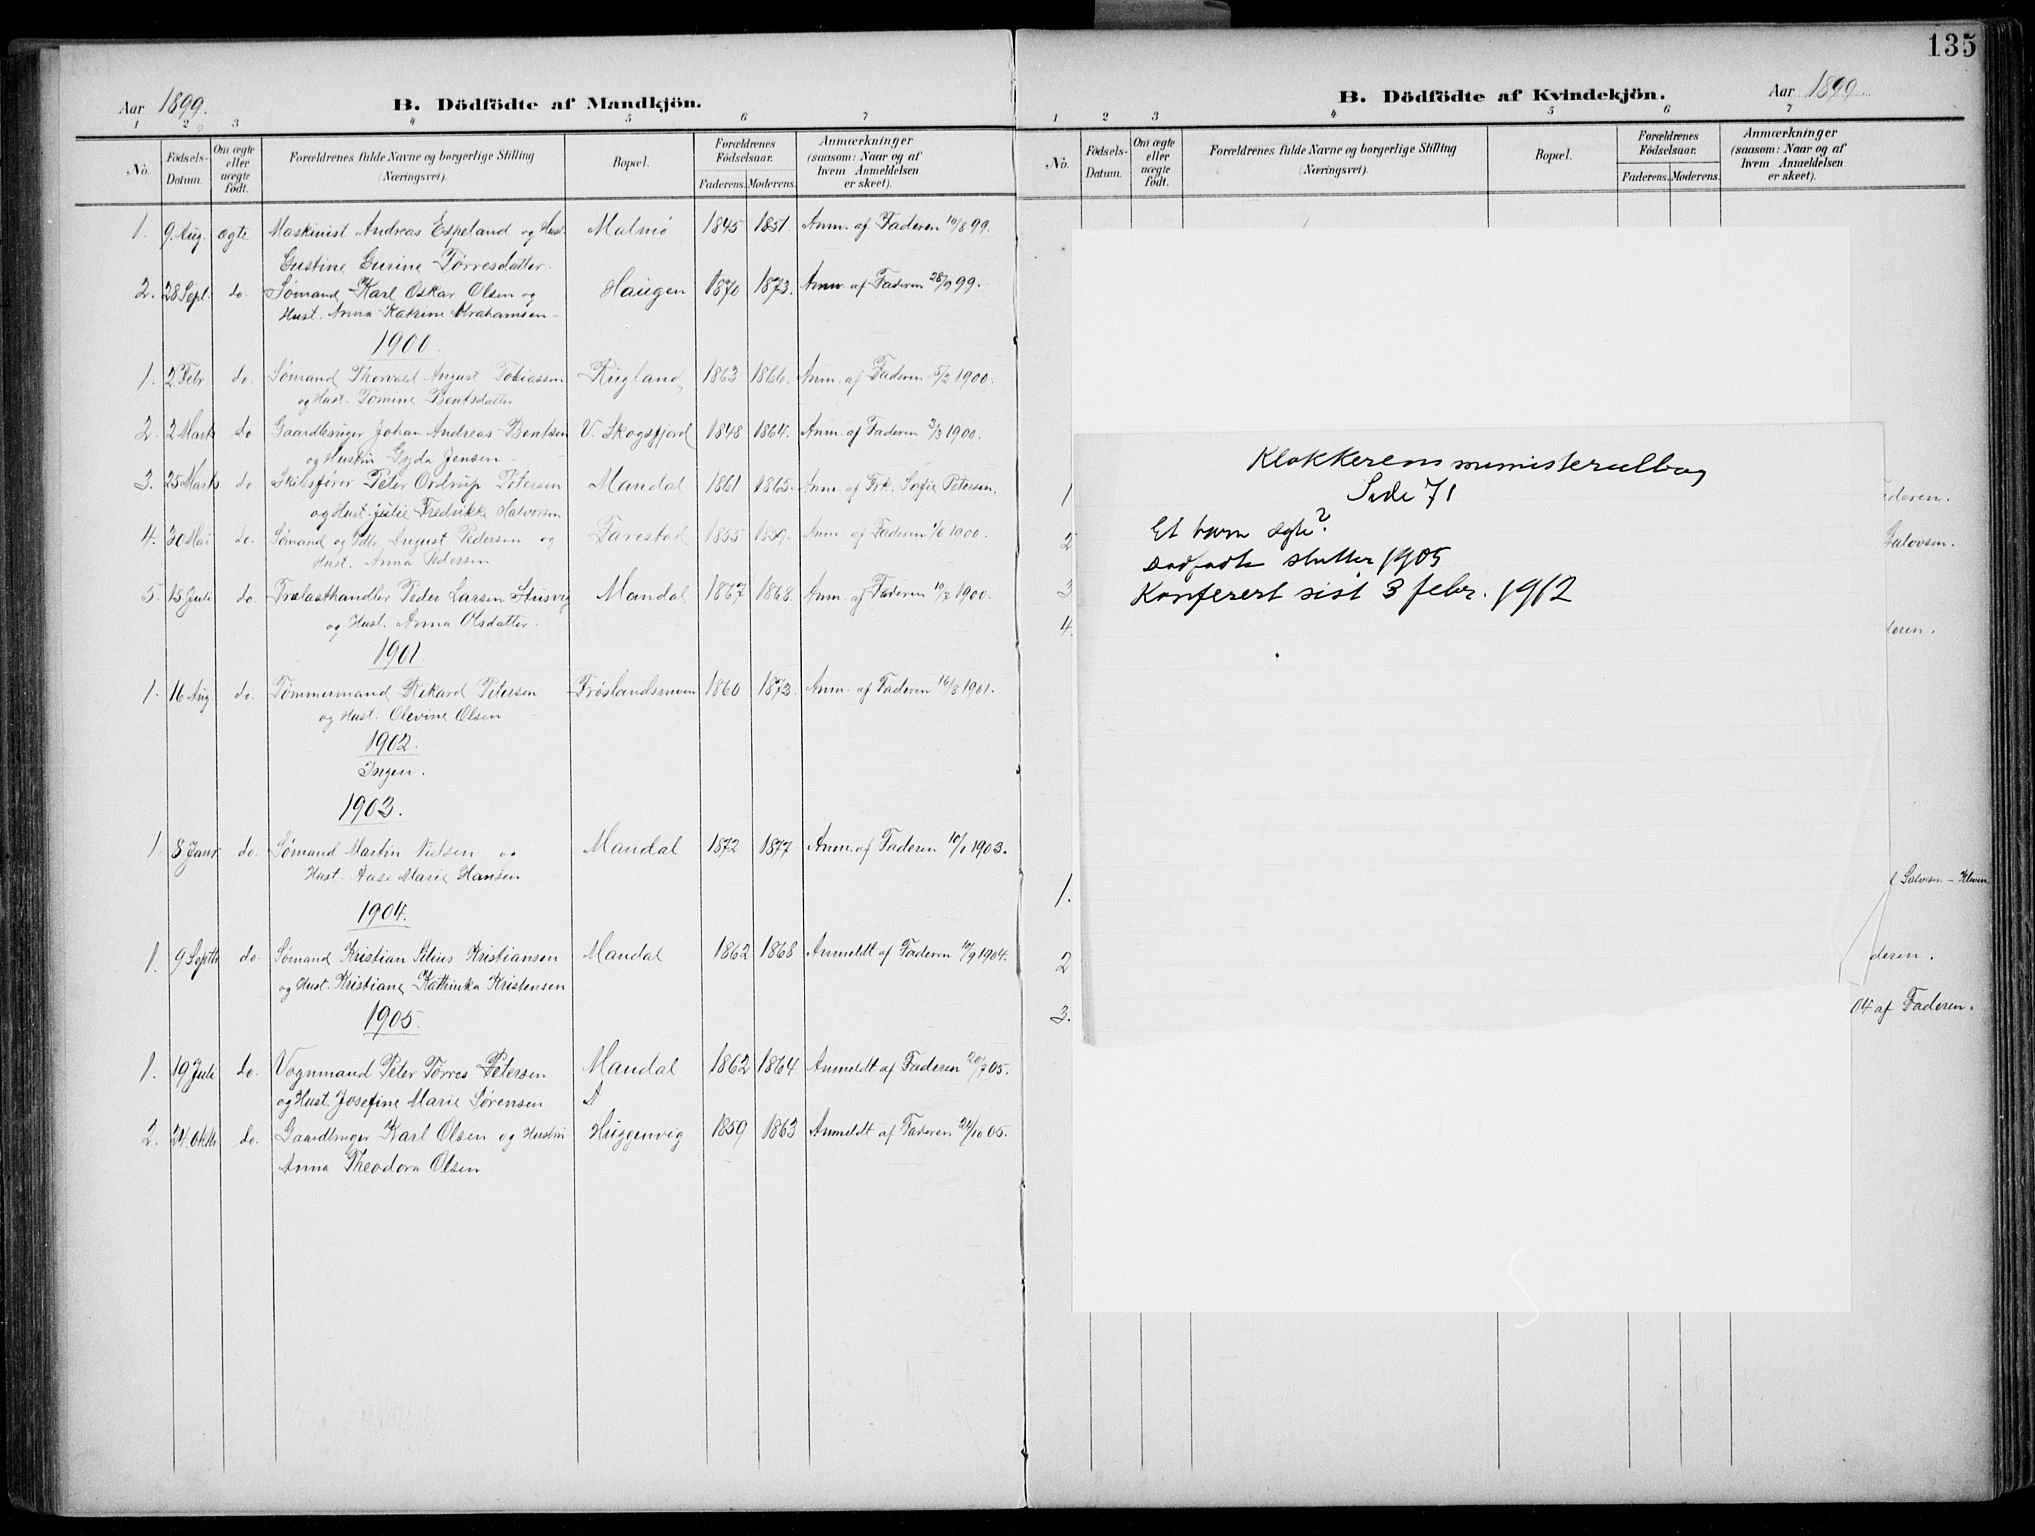 Aar 1899.
B. Dödfödte af Mandkjön.
1 2 3 4 5 6 7
No. Födsels-Datum. Om ægte eller uægte födt. Forældrenes fulde Navne og borgerlige Stilling (Næringsvei). Bopæl. Forældrenes Födselsaar. Faderens. Moderens. Anmærkninger (saasom: Naar og af hvem Anmeldelsen er skeet).
1. 9 Aug. ægte Maskinist Andreas Espeland og Hust. Malmø 1845 1851. Anm. af Faderen 10/8 99.
Gustine Gurine Tørresdatter.
2. 28 Sept. do. Sømand Karl Oskar Olsen og Haugen 1870 1873. Anm. af Faderen 28/9 99.
Hust. Anna Katrine Abrahamsen
1900.
1. 2 Febr do. Sømand Thorvald August Tobiassen Rugland 1863 1866. Anm. af Faderen 5/2 1900.
og Hust. Tomine Bentsdatter
2. 2 Marts do Gaardbruger Johan Andreas Bentsen V. Skogsfjord 1848 1864. Anm. af Faderen 3/3 1900.
og Hustru Gyda Jensen
3. 25 Marts do Skibsfører Peter Ordrup Petersen Mandal 1861 1865. Anm. af Frk. Sofie Petersen.
og Hust. Julie Fredrikke Halvorsen
4. 30 Mai do. Sømand og Gdbr. August Pedersen og Farestad 1855 1859. Anm. af Faderen 1/6 1900.
Hust. Anna Pedersen
5. 15 Juli do. Trælasthandler Peder Larsen Husvig Mandal 1867 1868. Anm. af Faderen 19/7 1900.
og Hust. Anna Olsdatter
1901.
1. 16 Aug. do. Tømmermand Rikard Petersen Frøslandsmoen 1860 1873. Anm. af Faderen 16/8 1901.
og Hust. Olevine Olsen
1902.
Ingen.
1903.
1 8 Janr. do. Sømand Martin Nielsen og Mandal 1872 1877 Anm. af Faderen 10/1 1903.
Hust. Aase Marie Hansen
1904.
1. 9 Septbr do. Sømand Kristian Silius Kristiansen Mandal 1862 1868 Anmeldt af Faderen 10/9 1904.
og Hust. Kristiane Kathinka Kristensen
1905.
1. 19 Juli do. Vognmand Peter Tørres Petersen Mandal 1862 1864 Anmeldt af Faderen 20/7 05.
og Hust. Josefine Marie Sørensen
2. 24. Oktbr do. Gaardbruger Karl Olsen og Hustru Huggenvig 1859 1863 Anmeldt af Faderen 24/10 05.
Anna Theodora Olsen
135
B. Dödfödte af Kvindekjön.
Aar 1899
1 2 3 4 5 6 7
No. Födsels-Datum. Om ægte eller uægte födt. Forældrenes fulde Navne og borgerlige Stilling (Næringsvei). Bopæl. Forældrenes Födselsaar. Faderens. Moderens. Anmærkninger (saasom: Naar og af hvem Anmeldelsen er skeet).
Klokkerens ministerialbog
Side 71
Et barn ægte?
Dødfødte slutter 1905
Konferert sist 3 febr. 1912
1 aderen.
2 Salvesen.
3
4. deren.
1. Salvesen - Kleven
2 deren.
3. 04 af Faderen.